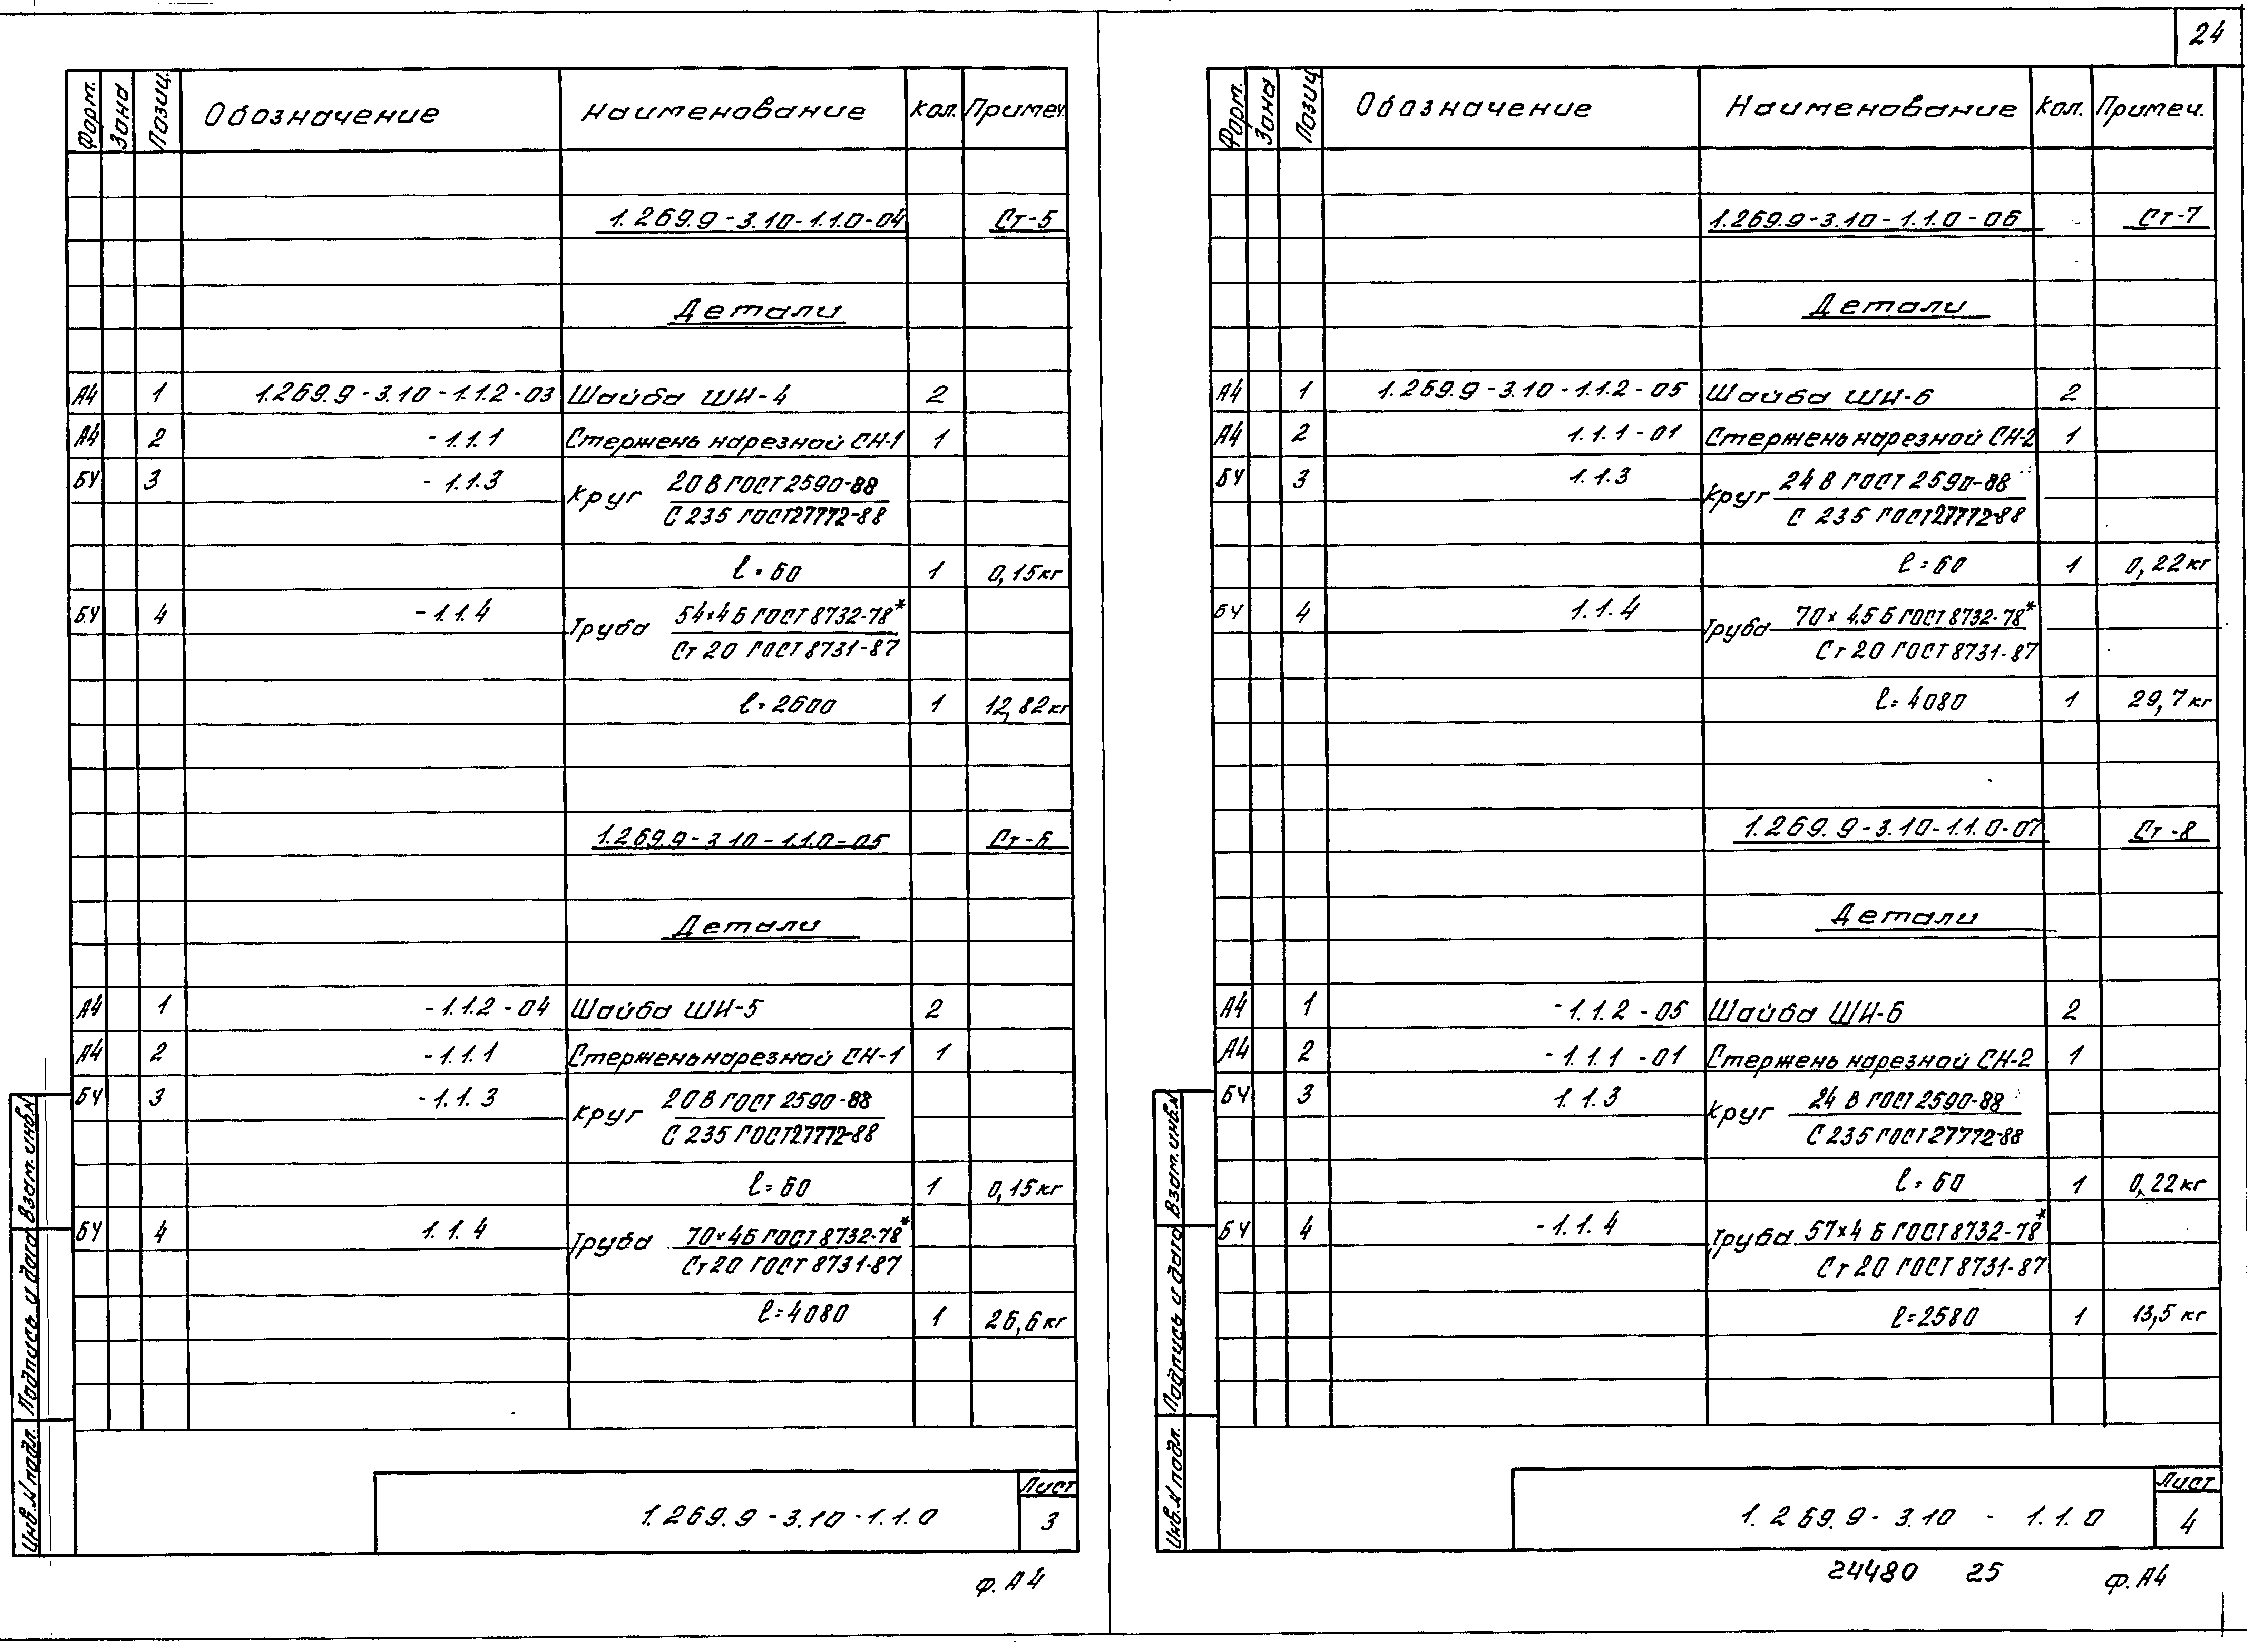 24
Форм. Зона Позиц. Обозначение Наименование Кол. Примеч.
1.269.9-3.10-1.1.0-04 Ст-5
Детали
А4 1 1.269.9-3.10-1.1.2-03 Шайба ШИ-4 2
А4 2 -1.1.1 Стержень нарезной СН-1 1
БЧ 3 -1.1.3 Круг 20 В ГОСТ 2590-88
С 235 ГОСТ 27772-88
l=60 1 0,15кг
БЧ 4 -1.1.4 Труба 54×4 Б ГОСТ 8732-78*
Ст 20 ГОСТ 8731-87
l=2600 1 12,82кг
1.269.9-3.10-1.1.0-05 Ст-6
Детали
А4 1 -1.1.2-04 Шайба ШИ-5 2
А4 2 -1.1.1 Стержень нарезной СН-1 1
БЧ 3 -1.1.3 Круг 20 В ГОСТ 2590-88
С 235 ГОСТ 27772-88
l=60 1 0,15кг
БЧ 4 1.1.4 Труба 70×4Б ГОСТ 8732-78*
Ст 20 ГОСТ 8731-87
l=4080 1 26,6кг
Инв. N подл. Подпись и дата Взам. инв. N
1.269.9-3.10-1.1.0 Лист
3
Ф. А4
Форм. Зона Позиц Обозначение Наименование Кол. Примеч.
1.269.9-3.10-1.1.0-06 Ст-7
Детали
А4 1 1.269.9-3.10-1.1.2-05 Шайба ШИ-6 2
А4 2 1.1.1-01 Стержень нарезной СН-2 1
БЧ 3 1.1.3 Круг 24 В ГОСТ 2590-88
С 235 ГОСТ 27772-88
l=60 1 0,22кг
БЧ 4 1.1.4 Труба 70×4.5 Б ГОСТ 8732-78*
Ст 20 ГОСТ 8731-87
l=4080 1 29,7кг
1.269.9-3.10-1.1.0-07 Ст-8
Детали
А4 1 -1.1.2-05 Шайба ШИ-6 2
А4 2 -1.1.1-01 Стержень нарезной СН-2 1
БЧ 3 1.1.3 Круг 24 В ГОСТ 2590-88
С 235 ГОСТ 27772-88
l=60 1 0,22кг
БЧ 4 -1.1.4 Труба 57×4 Б ГОСТ 8732-78*
Ст 20 ГОСТ 8731-87
l=2580 1 13,5 кг
Инв. N подл. Подпись и дата Взам. инв. N
1.269.9-3.10-1.1.0 Лист
4
24480 25 Ф. А4